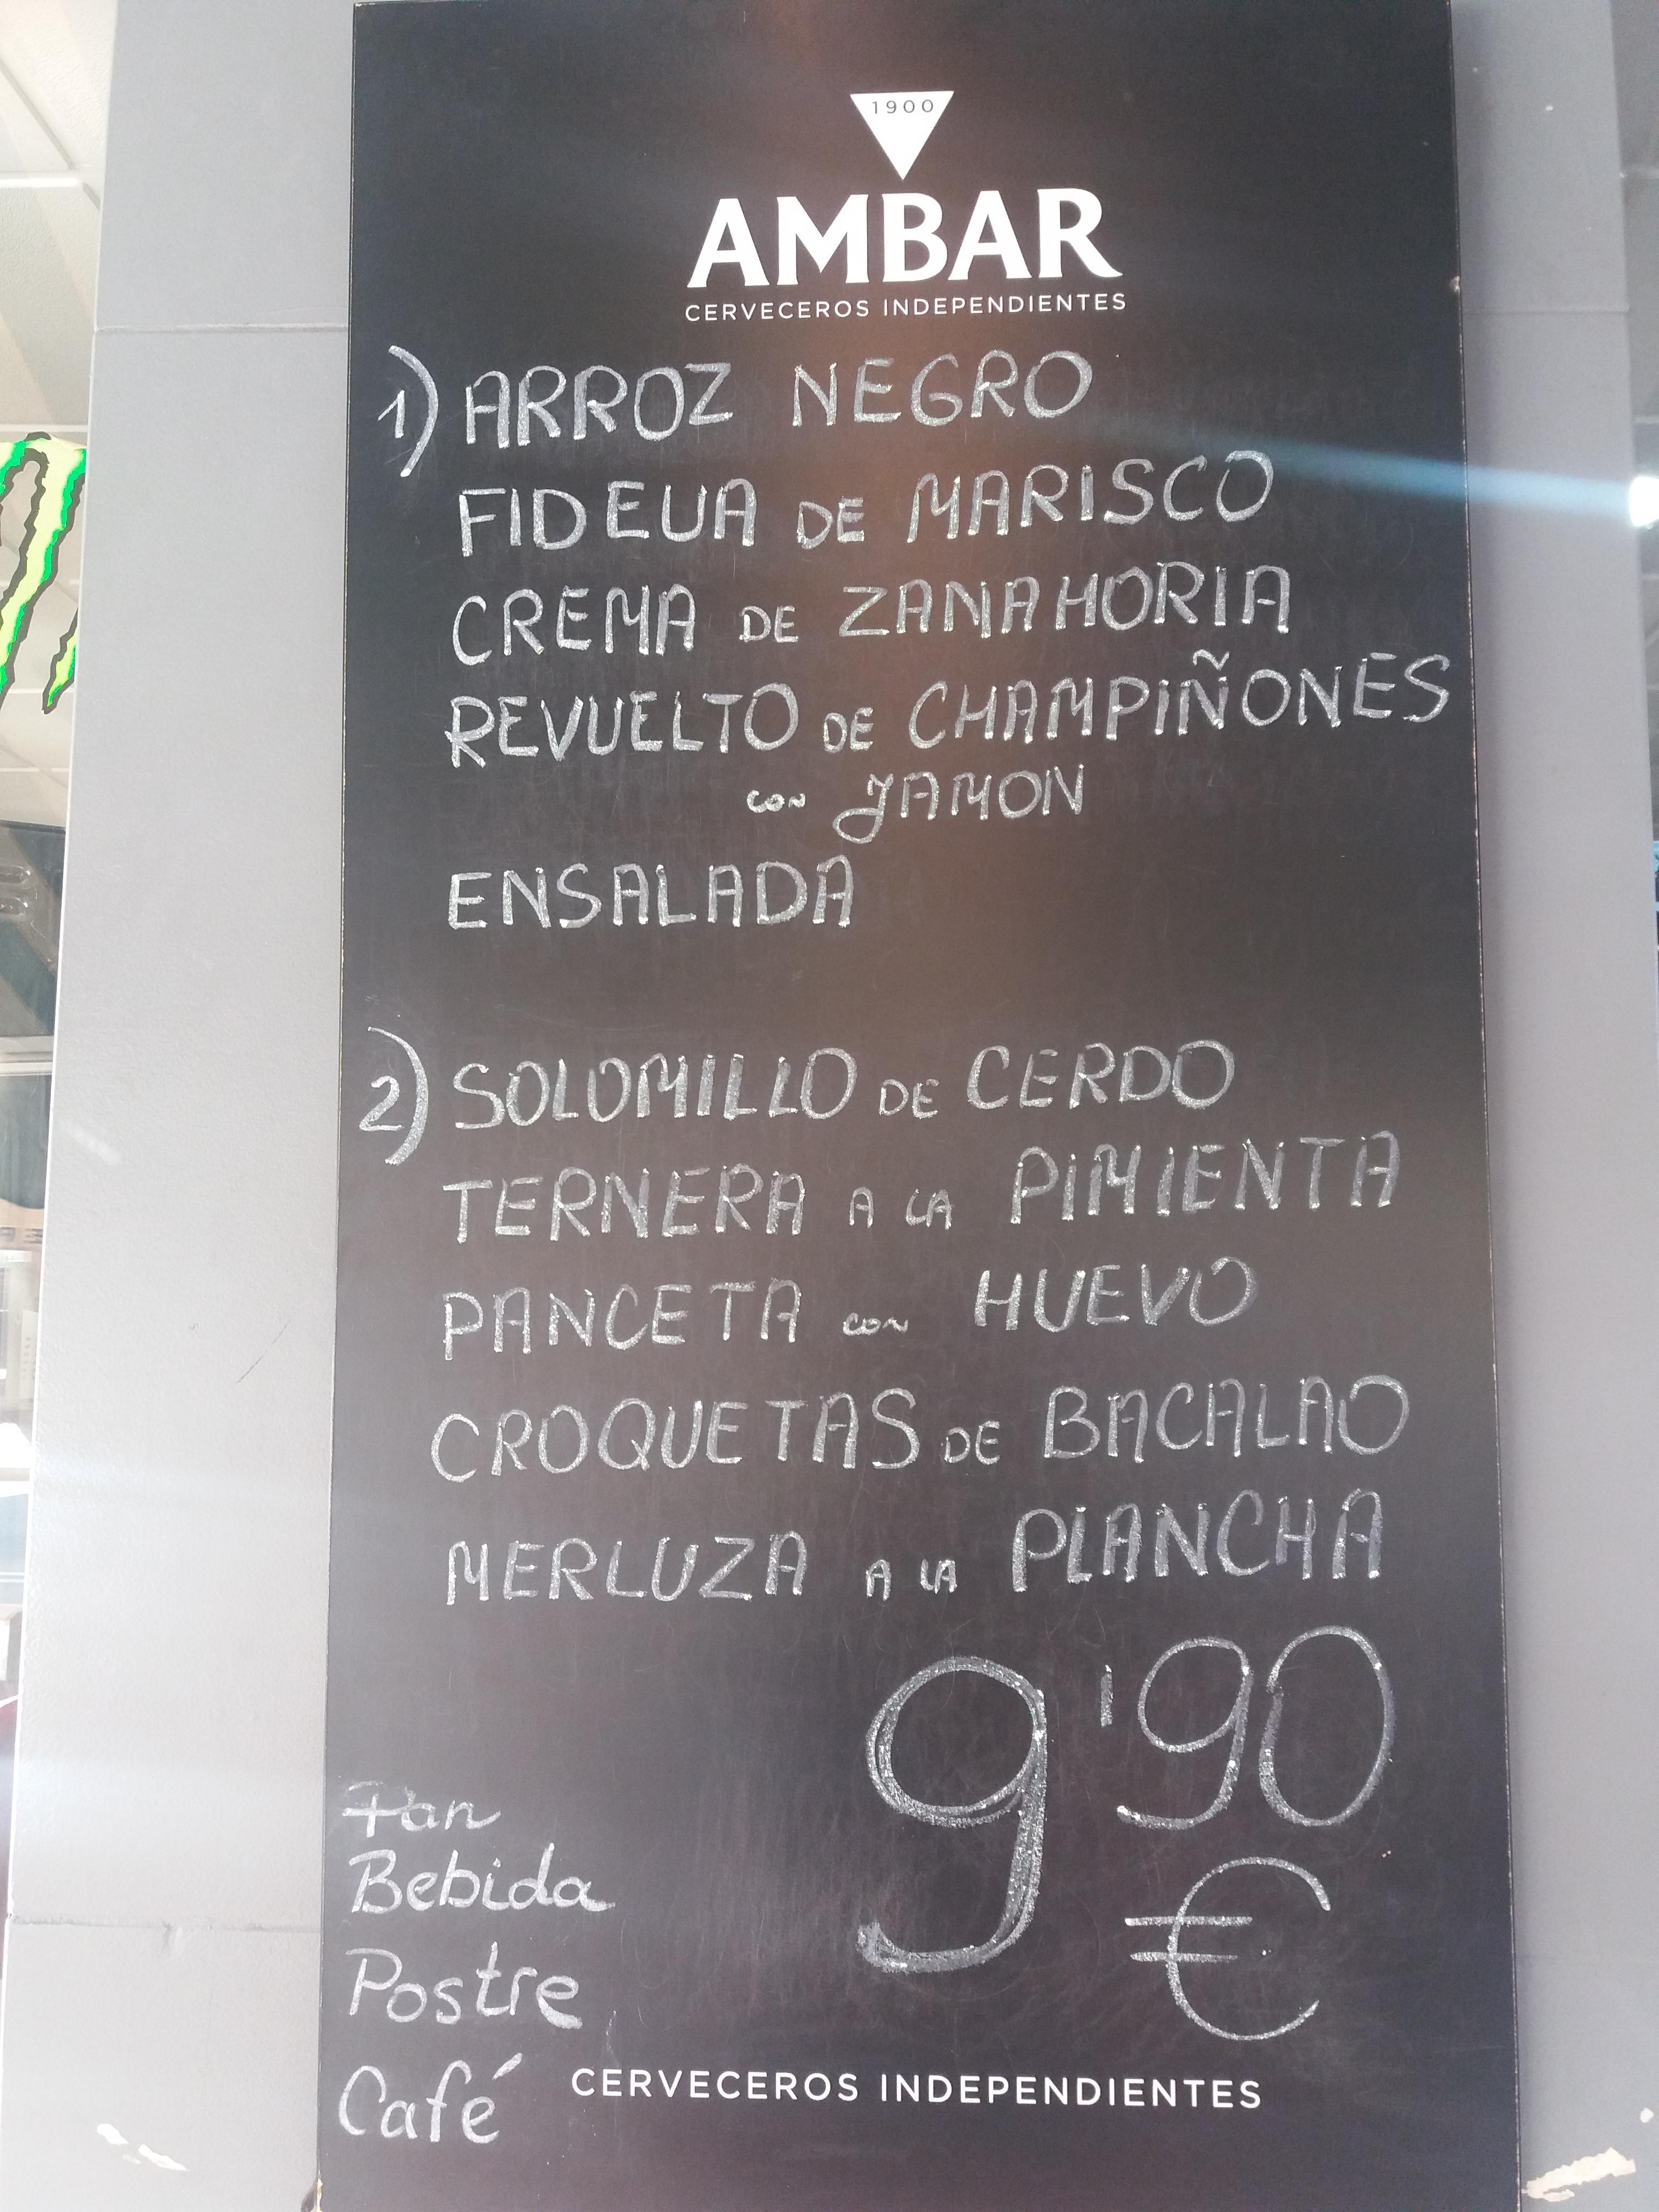 1900
AMBAR
CERVECEROS INDEPENDIENTES
1) ARROZ NEGRO
FIDEUA DE MARISCO
CREMA DE ZANAHORIA
REVUELTO DE CHAMPIÑONES
con JAMON
ENSALADA
2) SOLOMILLO DE CERDO
TERNERA A LA PIMIENTA
PANCETA con HUEVO
CROQUETAS DE BACALAO
MERLUZA A LA PLANCHA
9'90
€
Pan
Bebida
Postre
Café
CERVECEROS INDEPENDIENTES